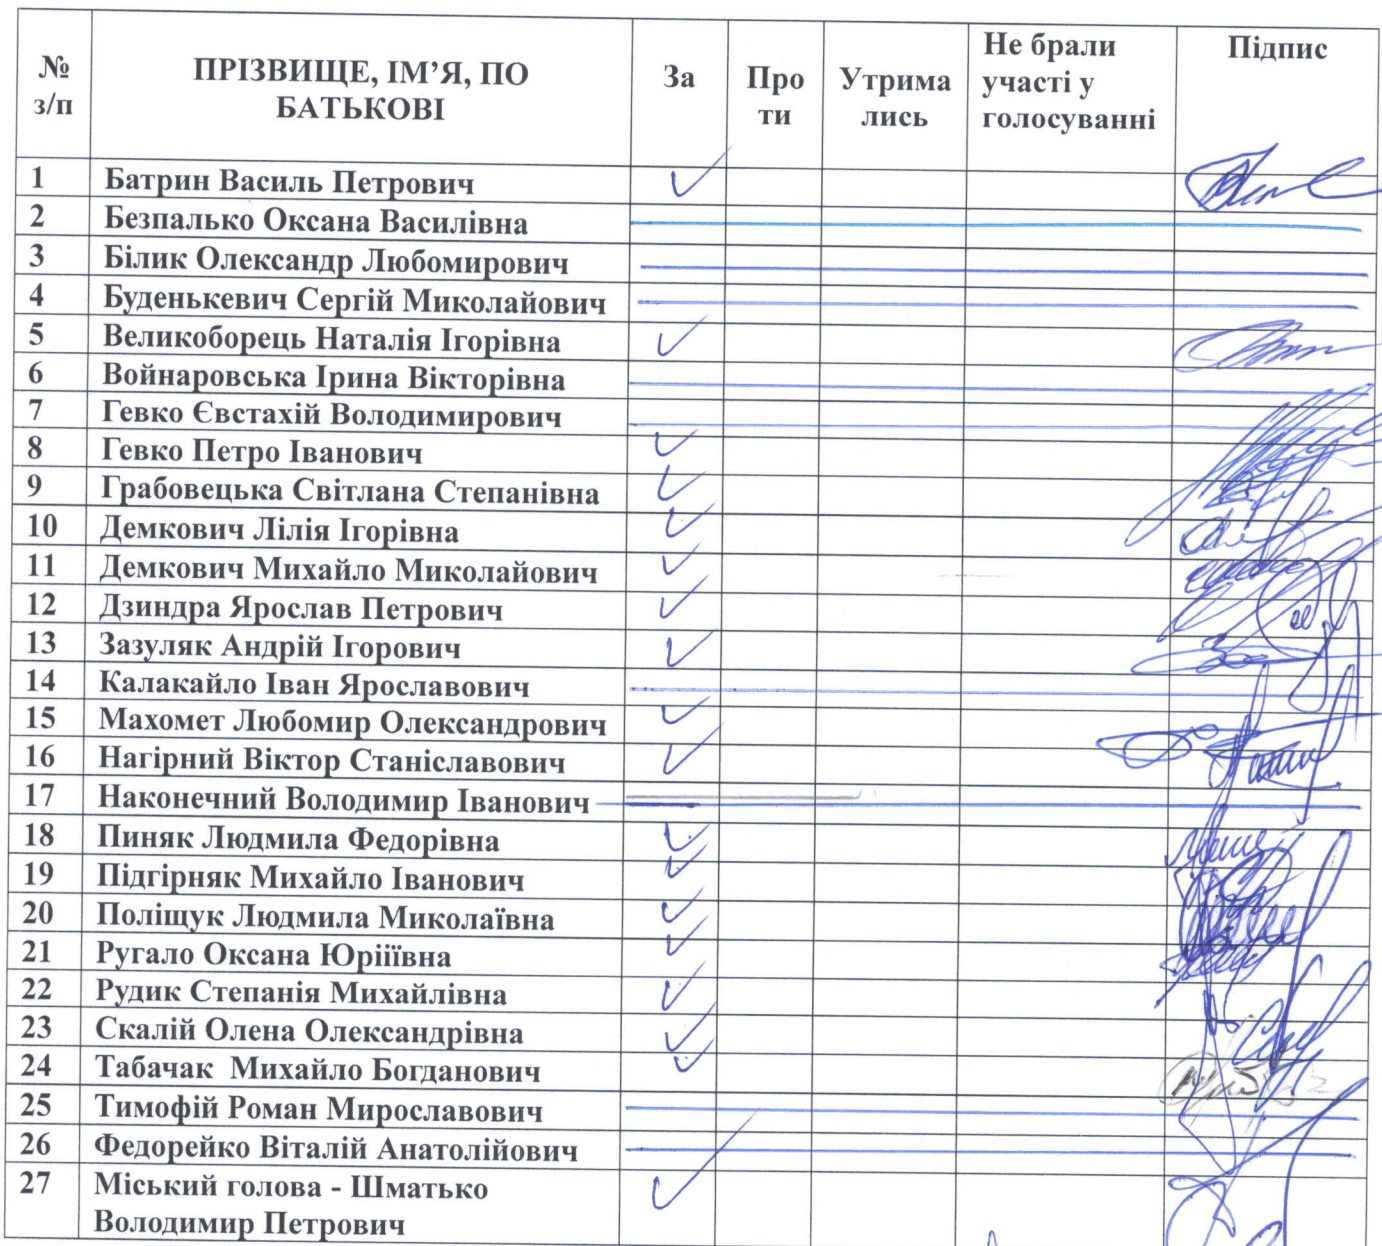 № з/п ПРІЗВИЩЕ, ІМ’Я, ПО БАТЬКОВІ За Про ти Утрима лись Не брали участі у голосуванні Підпис
1 Батрин Василь Петрович ✓
2 Безпалько Оксана Василівна
3 Білик Олександр Любомирович
4 Буденькевич Сергій Миколайович
5 Великоборець Наталія Ігорівна ✓
6 Войнаровська Ірина Вікторівна
7 Гевко Євстахій Володимирович
8 Гевко Петро Іванович ✓
9 Грабовецька Світлана Степанівна ✓
10 Демкович Лілія Ігорівна ✓
11 Демкович Михайло Миколайович ✓
12 Дзиндра Ярослав Петрович ✓
13 Зазуляк Андрій Ігорович ✓
14 Калакайло Іван Ярославович
15 Махомет Любомир Олександрович ✓
16 Нагірний Віктор Станіславович ✓
17 Наконечний Володимир Іванович
18 Пиняк Людмила Федорівна ✓
19 Підгірняк Михайло Іванович ✓
20 Поліщук Людмила Миколаївна ✓
21 Ругало Оксана Юріїївна ✓
22 Рудик Степанія Михайлівна ✓
23 Скалій Олена Олександрівна ✓
24 Табачак Михайло Богданович ✓
25 Тимофій Роман Мирославович
26 Федорейко Віталій Анатолійович
27 Міський голова - Шматько
Володимир Петрович ✓